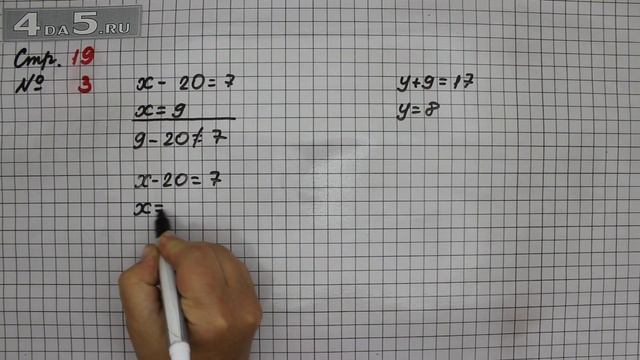 4DA5.RU
Стр. 19
№ 3
x - 20 = 7
x = 9
9 - 20 ≠ 7
x - 20 = 7
x =
y + 9 = 17
y = 8